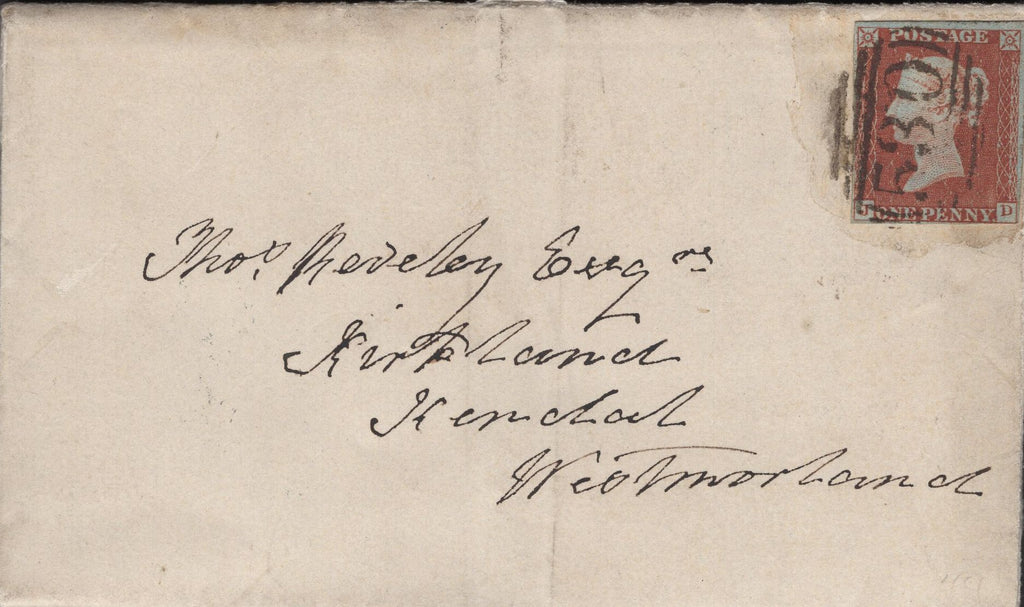 POSTAGE
530
J D
ONE PENNY
Thos. Reveley Esqre
Kirkland
Kendal
Westmorland